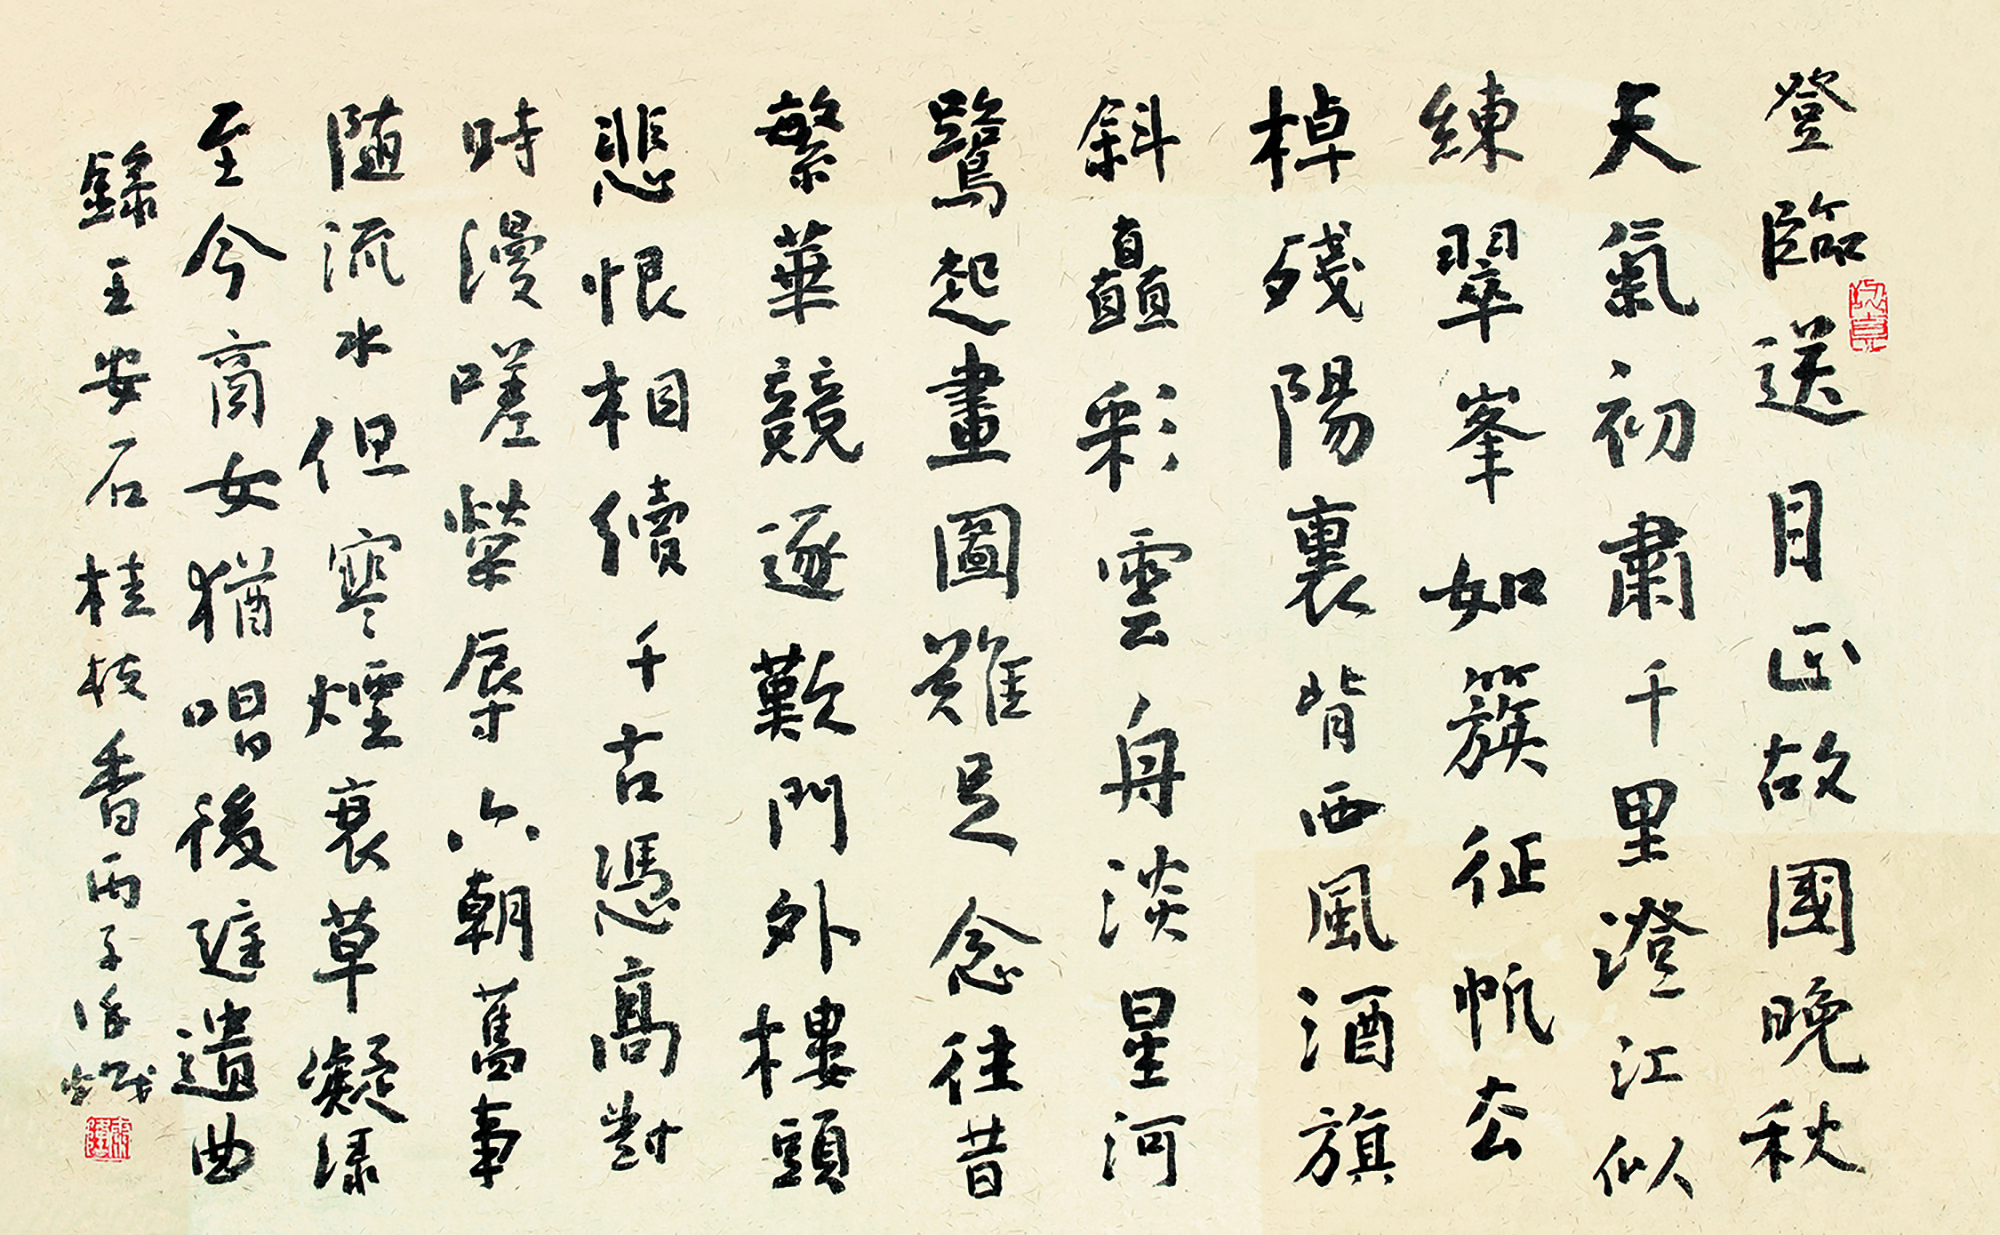 登臨送目正故國晚秋
天氣初肅千里澄江似
練翠峯如簇征帆去
棹殘陽裏背西風酒旗
斜矗彩雲舟淡星河
鷺起畫圖難足念往昔
繁華競逐歎門外樓頭
悲恨相續千古憑高對
時漫嗟榮辱六朝舊事
随流水但寒煙衰草凝淥
至今商女猶唱後庭遺曲
錄王安石桂枝香丙子